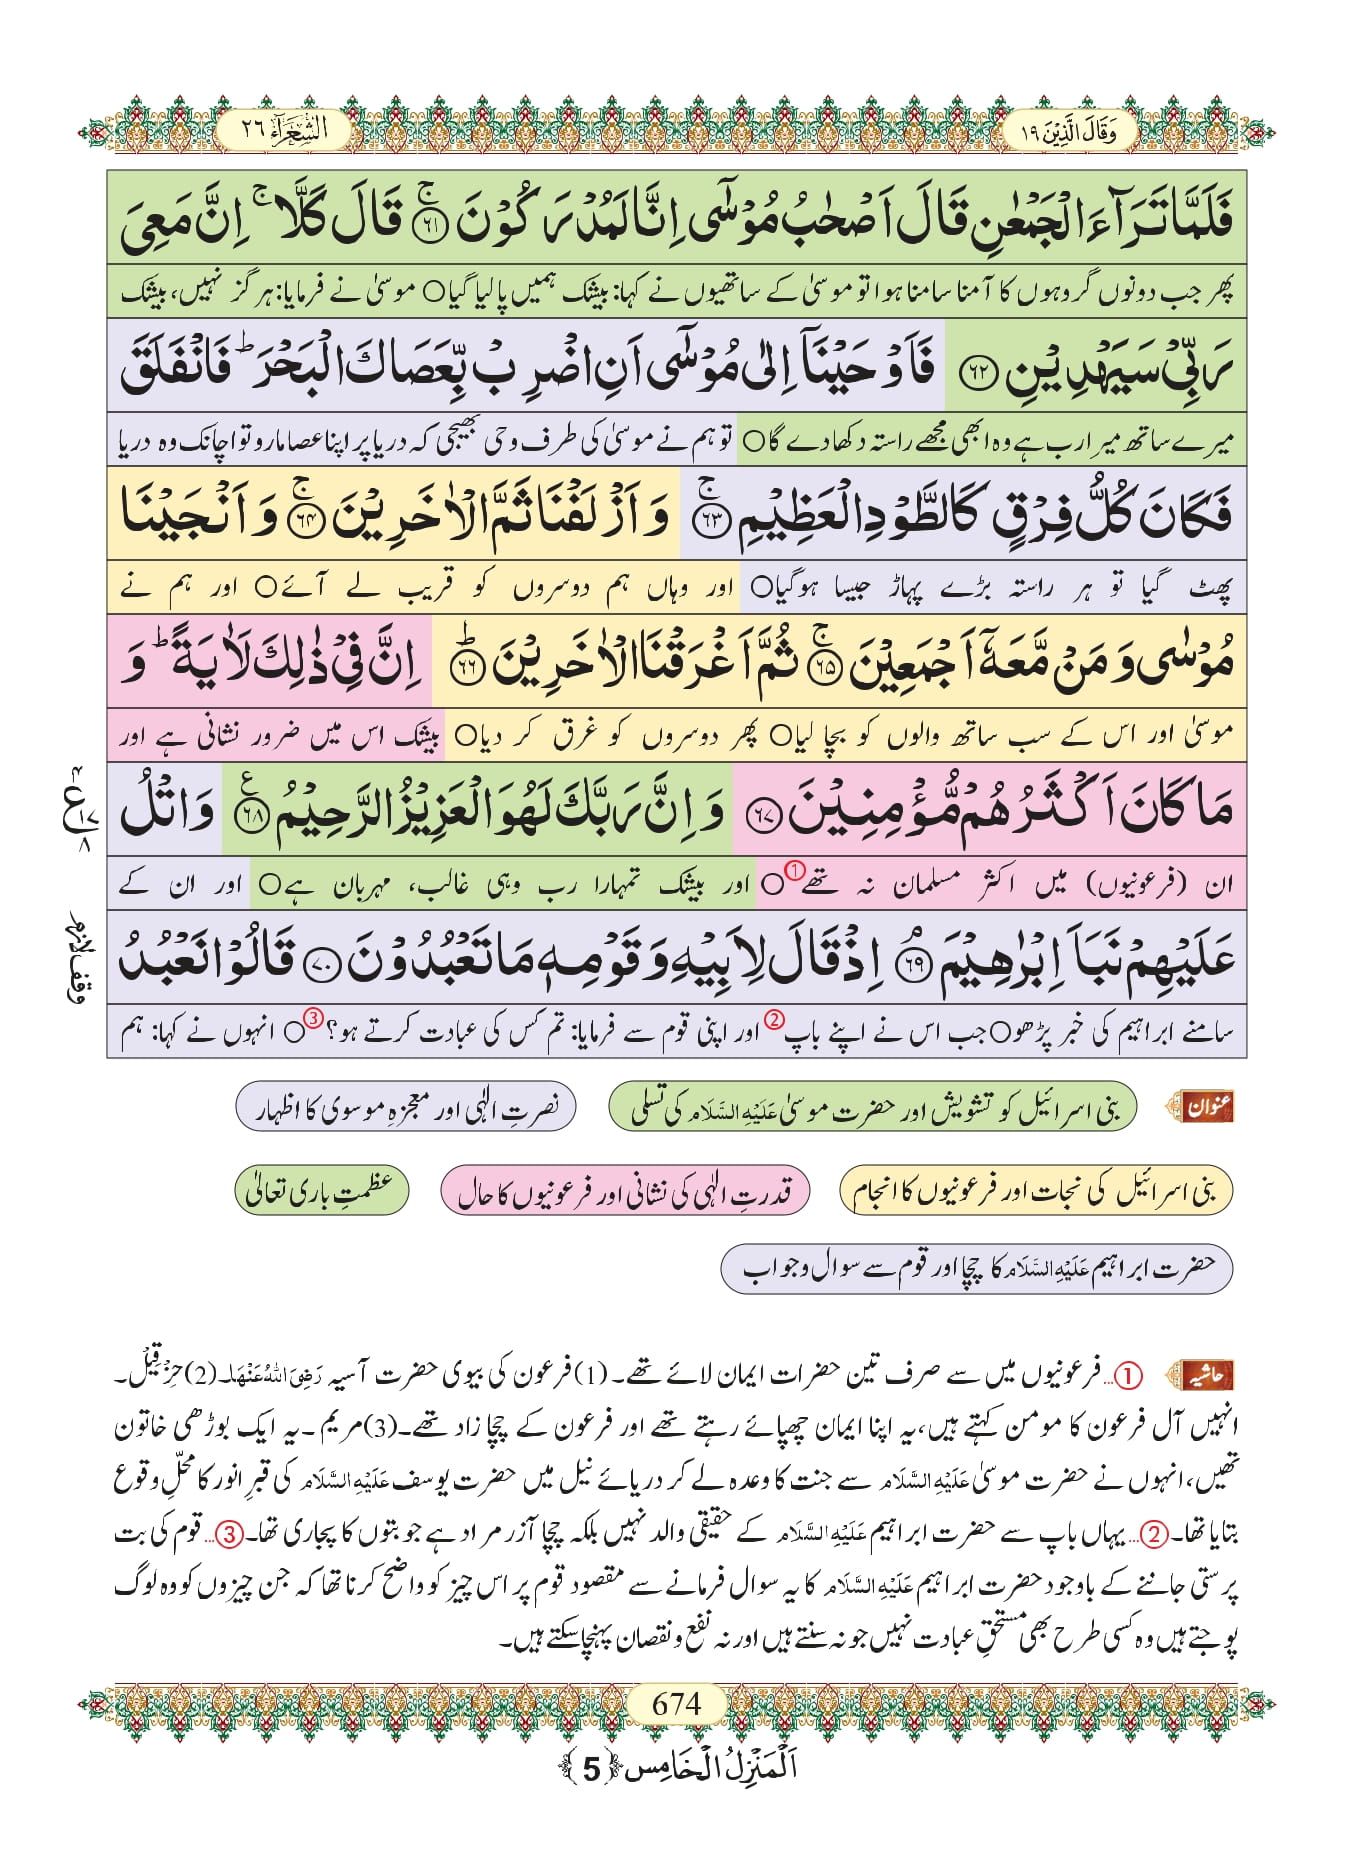 وَقَالَ الَّذِیْنَ ۱۹
الشُّعَرَآء ۲۶
فَلَمَّا تَرَآءَ الْجَمْعٰنِ قَالَ اَصْحٰبُ مُوْسٰۤى اِنَّا لَمُدْرَكُوْنَۚ(۶۱) قَالَ كَلَّاۚ اِنَّ مَعِیَ
پھر جب دونوں گروہوں کا آمنا سامنا ہوا تو موسیٰ کے ساتھیوں نے کہا: بیشک ہمیں پالیا گیا○ موسیٰ نے فرمایا: ہرگز نہیں، بیشک
رَبِّیْ سَیَهْدِیْنِ(۶۲) فَاَوْحَیْنَاۤ اِلٰى مُوْسٰۤى اَنِ اضْرِبْ بِّعَصَاكَ الْبَحْرَؕ فَانْفَلَقَ
میرے ساتھ میرا رب ہے وہ ابھی مجھے راستہ دکھا دے گا○ تو ہم نے موسیٰ کی طرف وحی بھیجی کہ دریا پر اپنا عصا مارو تو اچانک وہ دریا
فَكَانَ كُلُّ فِرْقٍ كَالطَّوْدِ الْعَظِیْمِۚ(۶۳) وَ اَزْلَفْنَا ثَمَّ الْاٰخَرِیْنَۚ(۶۴) وَ اَنْجَیْنَا
پھٹ گیا تو ہر راستہ بڑے پہاڑ جیسا ہوگیا○ اور وہاں ہم دوسروں کو قریب لے آئے○ اور ہم نے
مُوْسٰى وَ مَنْ مَّعَهٗۤ اَجْمَعِیْنَۚ(۶۵) ثُمَّ اَغْرَقْنَا الْاٰخَرِیْنَؕ(۶۶) اِنَّ فِیْ ذٰلِكَ لَاٰیَةًؕ وَ
موسیٰ اور اس کے سب ساتھ والوں کو بچا لیا○ پھر دوسروں کو غرق کر دیا○ بیشک اس میں ضرور نشانی ہے اور
مَا كَانَ اَكْثَرُهُمْ مُّؤْمِنِیْنَ(۶۷) وَ اِنَّ رَبَّكَ لَهُوَ الْعَزِیْزُ الرَّحِیْمُ۠(۶۸) وَ اتْلُ
ع ۱۷ ۸
ان (فرعونیوں) میں اکثر مسلمان نہ تھے①○ اور بیشک تمہارا رب وہی غالب، مہربان ہے○ اور ان کے
عَلَیْهِمْ نَبَاَ اِبْرٰهِیْمَۘ(۶۹) اِذْ قَالَ لِاَبِیْهِ وَ قَوْمِهٖ مَا تَعْبُدُوْنَ(۷۰) قَالُوْا نَعْبُدُ
وقف لازم
سامنے ابراہیم کی خبر پڑھو○ جب اس نے اپنے باپ② اور اپنی قوم سے فرمایا: تم کس کی عبادت کرتے ہو؟③○ انہوں نے کہا: ہم
عنوان بنی اسرائیل کو تشویش اور حضرت موسیٰ عَلَیْہِ السَّلَام کی تسلی نصرتِ الٰہی اور معجزہِ موسوی کا اظہار
بنی اسرائیل کی نجات اور فرعونیوں کا انجام قدرتِ الٰہی کی نشانی اور فرعونیوں کا حال عظمتِ باری تعالیٰ
حضرت ابراہیم عَلَیْہِ السَّلَام کا چچا اور قوم سے سوال وجواب
حاشیہ ①... فرعونیوں میں سے صرف تین حضرات ایمان لائے تھے۔ (1) فرعون کی بیوی حضرت آسیہ رَضِیَ اللہُ عَنْہَا۔ (2) حِزْقِیْل۔
انہیں آل فرعون کا مومن کہتے ہیں، یہ اپنا ایمان چھپائے رہتے تھے اور فرعون کے چچا زاد تھے۔ (3) مریم۔ یہ ایک بوڑھی خاتون
تھیں، انہوں نے حضرت موسیٰ عَلَیْہِ السَّلَام سے جنت کا وعدہ لے کر دریائے نیل میں حضرت یوسف عَلَیْہِ السَّلَام کی قبرِ انور کا محلِّ وقوع
بتایا تھا۔ ②... یہاں باپ سے حضرت ابراہیم عَلَیْہِ السَّلَام کے حقیقی والد نہیں بلکہ چچا آزر مراد ہے جو بتوں کا پجاری تھا۔ ③... قوم کی بت
پرستی جاننے کے باوجود حضرت ابراہیم عَلَیْہِ السَّلَام کا یہ سوال فرمانے سے مقصود قوم پر اس چیز کو واضح کرنا تھا کہ جن چیزوں کو وہ لوگ
پوجتے ہیں وہ کسی طرح بھی مستحقِ عبادت نہیں جو نہ سنتے ہیں اور نہ نفع و نقصان پہنچا سکتے ہیں۔
674
اَلْمَنْزِلُ الْخَامِس ﴿5﴾